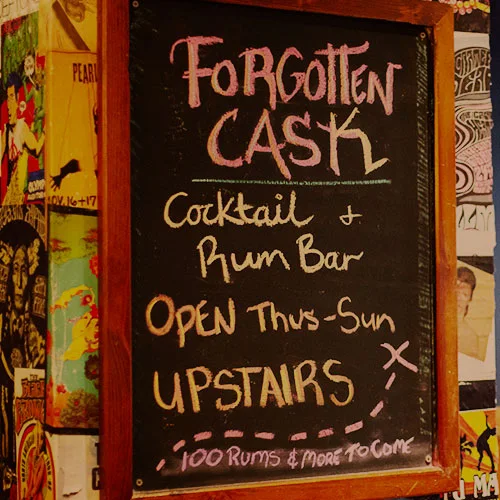 FORGOTTEN
CASK
Cocktail +
Rum Bar
OPEN Thus-Sun
UPSTAIRS
X
100 RUMS & MORE TO COME
PEARL
OV. 16 + 17